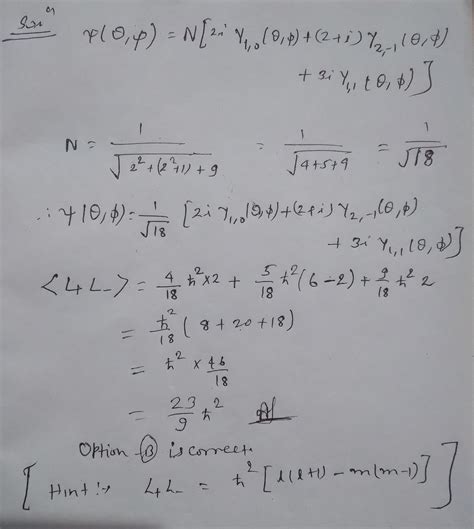 Soln
ψ(θ,φ) = N[2i Y1,0(θ,φ) + (2+i) Y2,-1(θ,φ)
+ 3i Y1,1(θ,φ)]
N = 1/√(2²+(2²+1)+9) = 1/√(4+5+9) = 1/√18
∴ ψ(θ,φ) = 1/√18 [2i Y1,0(θ,φ) + (2+i) Y2,-1(θ,φ)
+ 3i Y1,1(θ,φ)]
<L+L-> = 4/18 ħ² × 2 + 5/18 ħ² (6-2) + 9/18 ħ² 2
= ħ²/18 (8 + 20 + 18)
= ħ² × 46/18
= 23/9 ħ²
Option - B is correct.
[Hint :- L+L- = ħ² [l(l+1) - m(m-1)]]